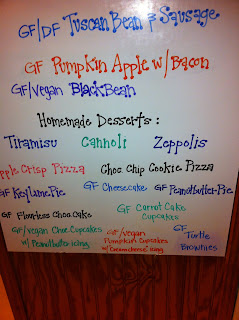 GF/DF Tuscan Bean & Sausage
GF Pumpkin Apple w/ Bacon
GF/Vegan Black Bean
Homemade Desserts:
Tiramisu Cannoli Zeppolis
Apple Crisp Pizza Choc. Chip Cookie Pizza
GF Key Lime Pie GF Cheesecake GF Peanutbutter Pie
GF Flourless Choc. Cake GF Carrot Cake
Cupcakes
GF/Vegan Choc Cupcakes GF/Vegan GF Turtle
w/ Peanutbutter icing Pumpkin Cupcakes Brownies
w/ Creamcheese icing